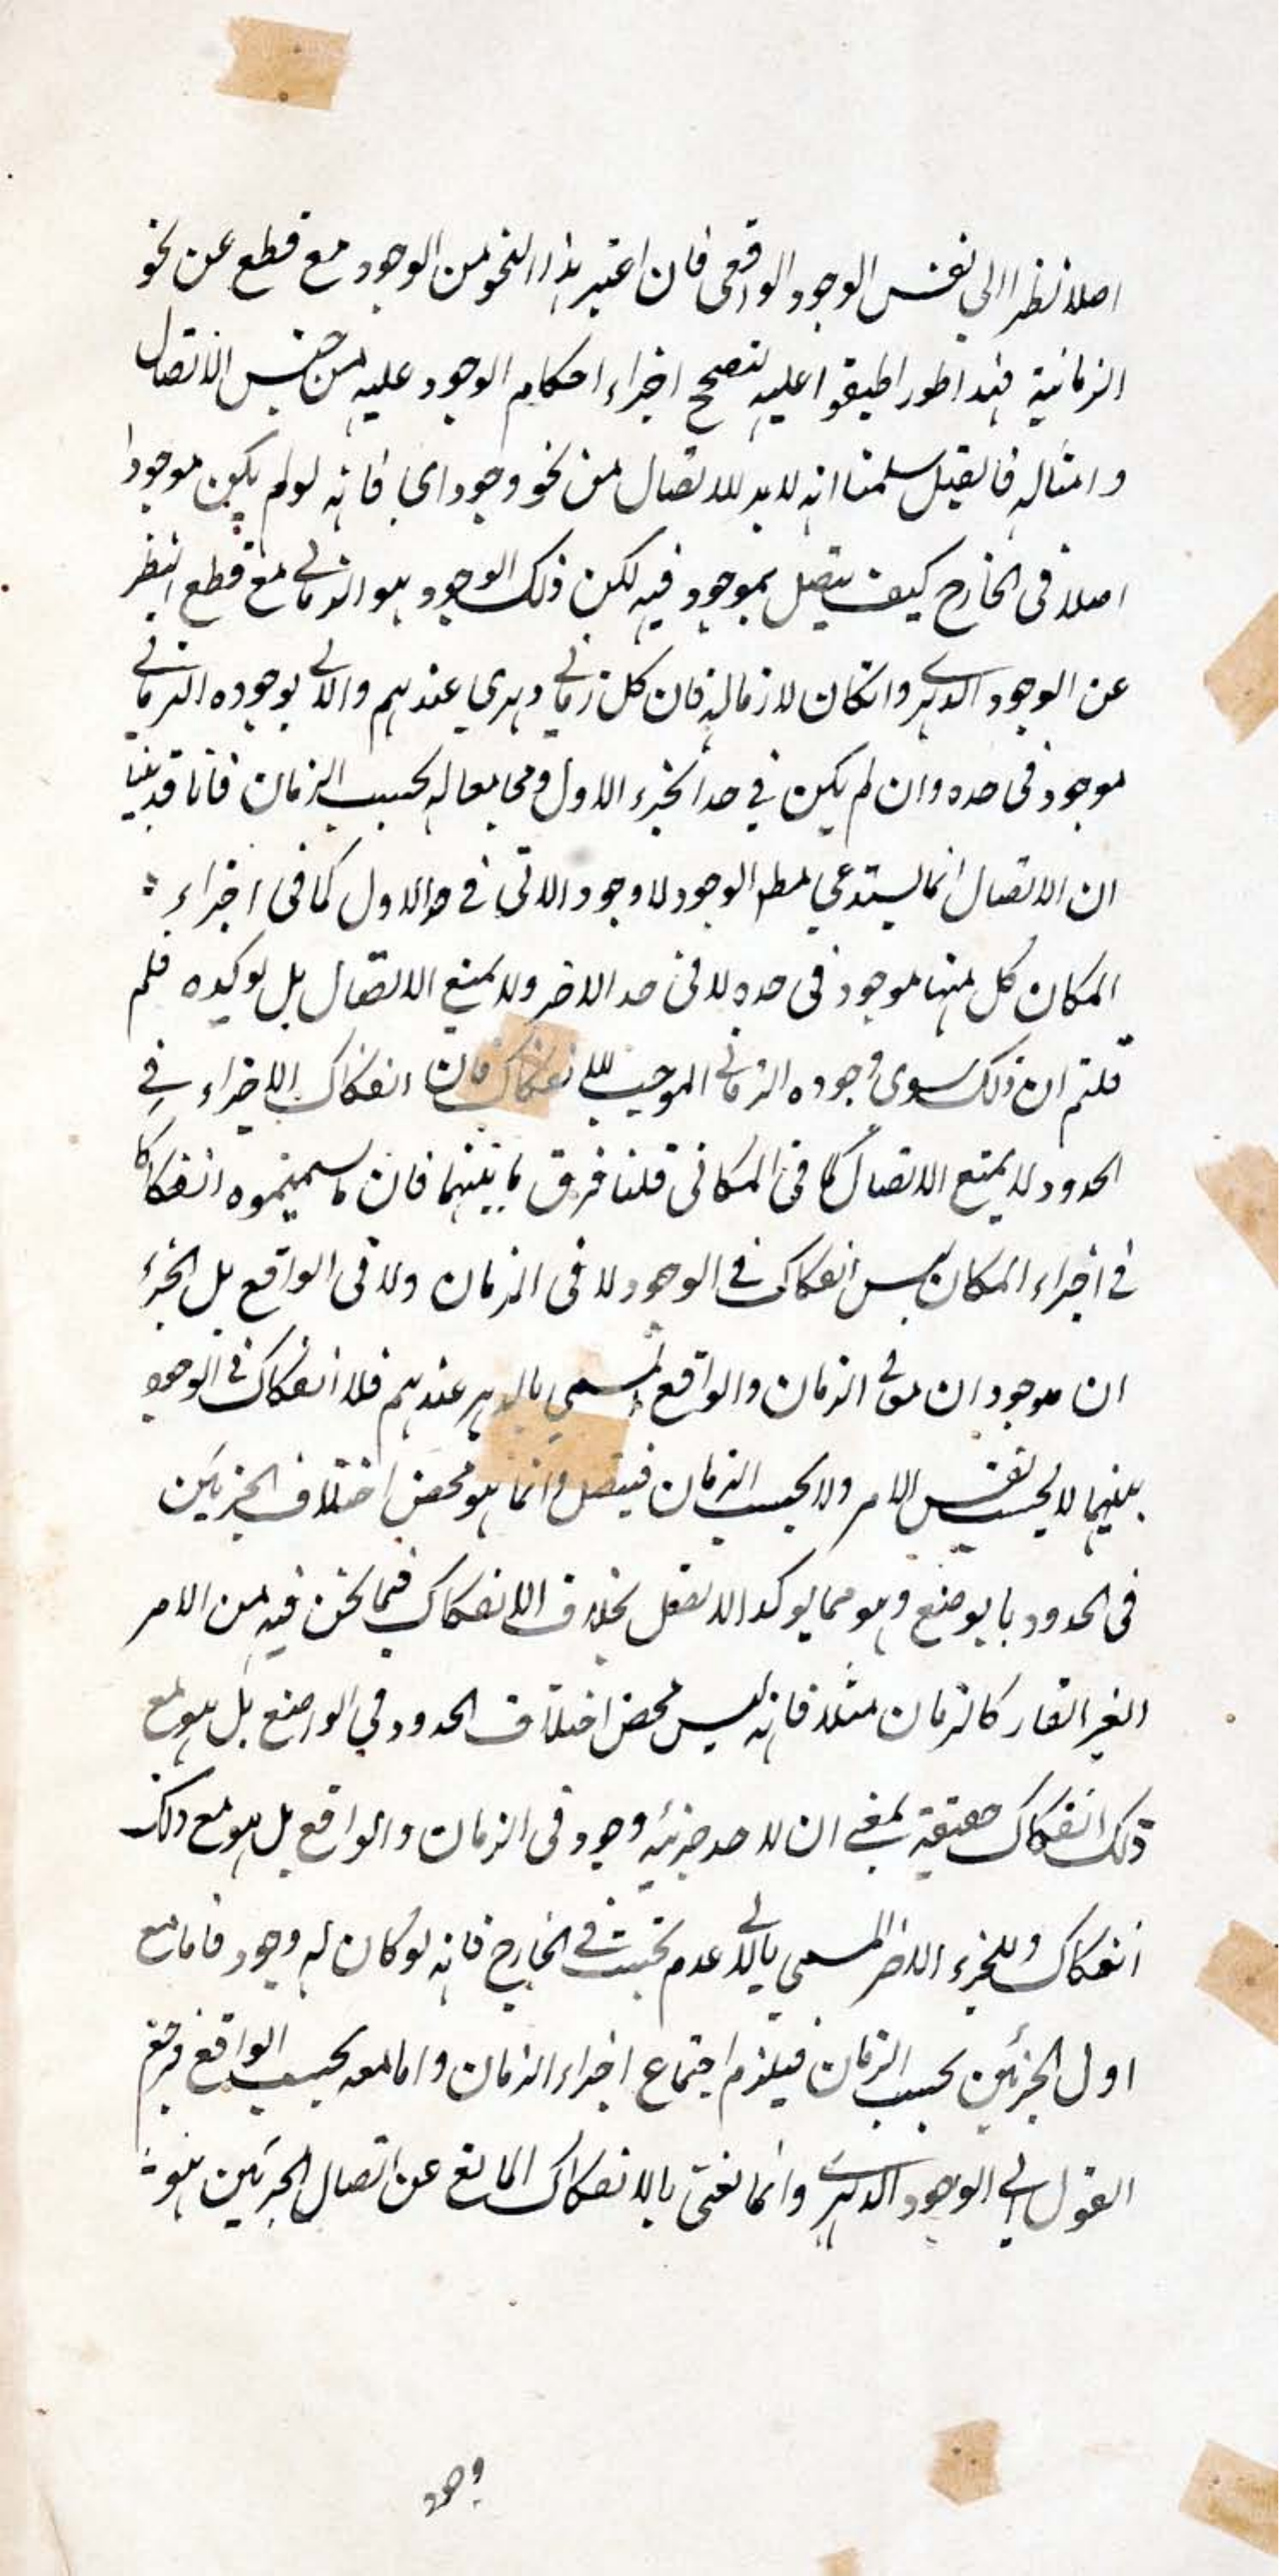 اصلا نظرا الى نفس الوجود الواقعى فان اعتبر هذا النحو من الوجود مع قطع عن نحو
الزمانية فهذا طور اطبقوا عليه لتصحح اجراء احكام الوجود عليه من جنس الاتصال
و امثاله فان قيل سلمنا انه لا بد للاتصال من نحو وجود اى فانه لو لم يكن موجودا
اصلا فى الخارج كيف يتصل بموجود فيه لكن ذلك الوجود هو الزمانے مع قطع النظر
عن الوجود الدهرے وان كان لازما له فان كل زمانے دهرى عندهم والاتے بوجوده الزمانے
موجود فى حده وان لم يكن فے حد الجزء الاول ومجامعا له بحسب الزمان فانا قد بينا
ان الاتصال انما يستدعى مطلق الوجود لا وجود الاتى فے حد الاول كما فى اجزاء
المكان كل منها موجود فى حده لا فى حد الاخر ولا يمنع الاتصال بل يوكده فلم
قلتم ان ذلك سوى وجوده الزمانے الموجب للانفكاك فان انفكاك الاجزاء فے
الحدود لا يمنع الاتصال كما فى المكانى قلنا فرق ما بينهما فان ما سميتموه انفكاكا
فے اجزاء المكان ليس انفكاك فے الوجود لا فى الزمان ولا فى الواقع بل الجزء
ان موجودان معا فے الزمان والواقع المسمى بالدهر عندهم فلا انفكاك فے الوجود
بينهما لا بحسب نفس الامر ولا بحسب الزمان فيتصل وانما هو محض اختلاف الجزئين
فى الحدود بالوضع وهو مما يوكد الاتصال بخلاف الانفكاك فيما نحن فيه من الامر
الغير القار كالزمان مثلا فانه ليس محض اختلاف الحدود فى الوضع بل هو مع
ذلك انفكاك حقيقة بمعنے ان لاحد جزئيه وجود فى الزمان والواقع بل هو مع ذلك
انفكاك وللجزء الاخر المسمى بالاتے عدم بحت فے الخارج فانه لو كان له وجود فاما مع
اول الجزئين بحسب الزمان فيلزم اجتماع اجزاء الزمان واما معه بحسب الواقع فرجع
القول الے الوجود الدهرے وانما نعنى بالانفكاك المانع عن اتصال الجزئين هو
وجود